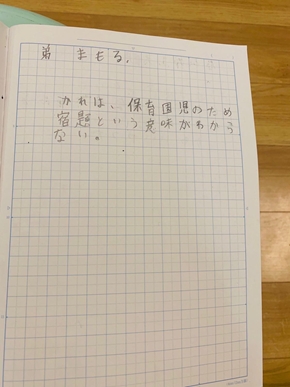 弟　まもる.
かれは、保育園児のため
宿題という意味がわから
ない。